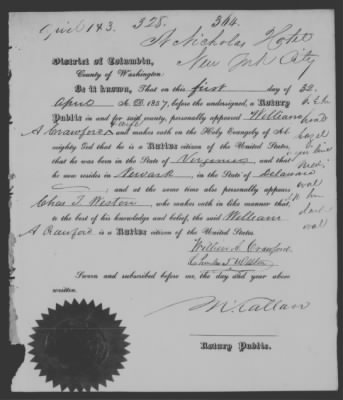 April 1 & 3. 328. 344.
St Nicholas Hotel
New York City
District of Columbia,
County of Washington:
Be it known, That on this first day of
April A.D. 1857, before the undersigned, a Notary
Public in and for said county, personally appeared William
A Crawford and makes oath on the Holy Evangely of Al-
mighty God that he is a Native citizen of the United States,
that he was born in the State of Virginia and that
he now resides in Newark, in the State of Delaware
; and at the same time also personally appears
Chas T. Weston, who makes oath in like manner, that
to the best of his knowledge and belief, the said William
A Crawford is a Native citizen of the United States.
William A. Crawford
Charles T. Weston
Sworn and subscribed before me, the day and year above
written.
Callan
Notary Public.
32
oval
oval